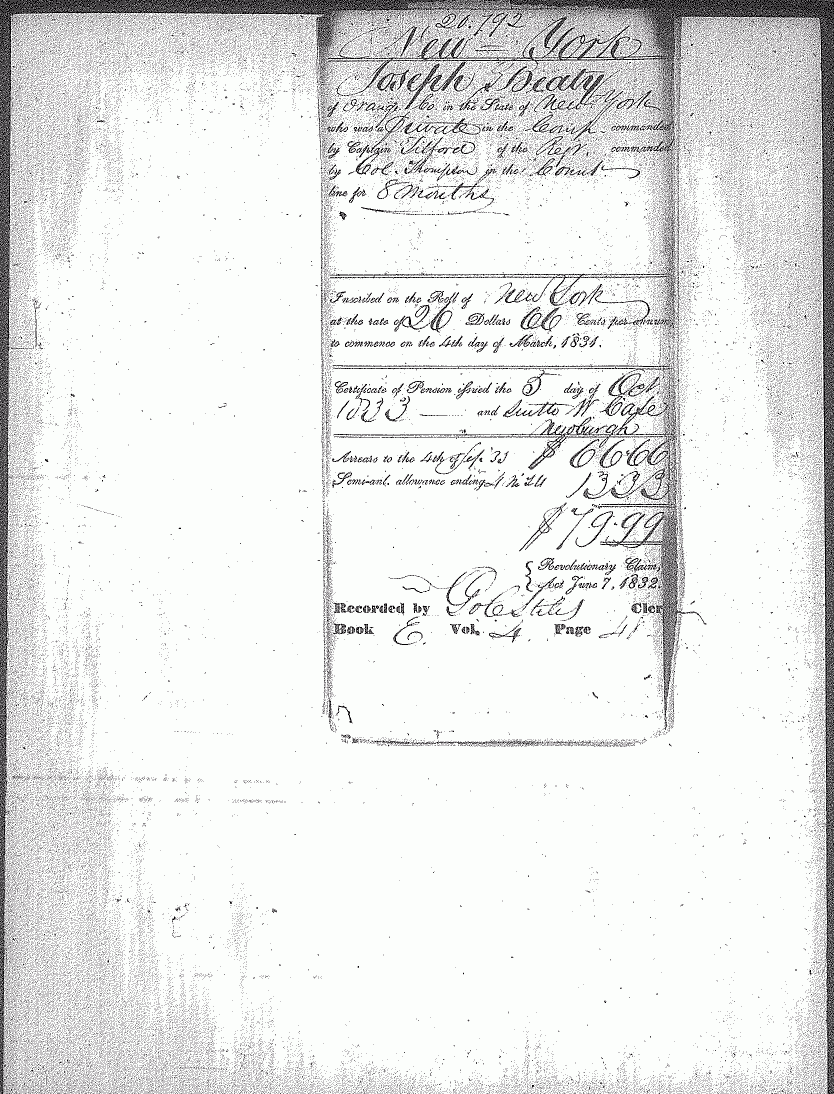 20.192
New = York
Joseph Beaty
of Orange Co. in the State of New York
who was a Private in the Comp commanded
by Captain Tilford of the Regt. commanded
by Col. Thompson in the Conn
line for 8 Months
Inscribed on the Roll of New York
at the rate of 26 Dollars 66 Cents per annum,
to commence on the 4th day of March, 1831.
Certificate of Pension issued the 5 day of Oct.
1833 and W Case
Newburgh
Arrears to the 4th of Sep. 33 $ 66.66
Semi-anl. allowance ending 13.33
$79.99
Revolutionary Claim,
Act June 7, 1832.
Recorded by Stiles Cler
Book E. Vol. 4. Page 41.